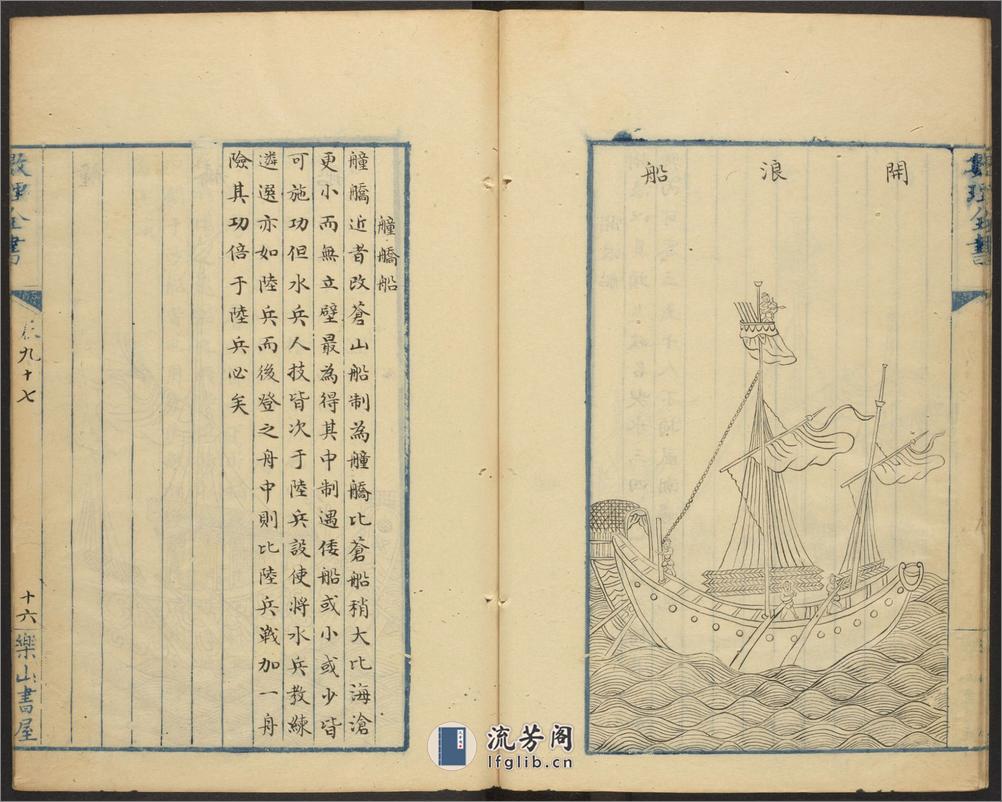 開浪船
全書
艟𦪞船
艟𦪞近者改蒼山船制為艟𦪞比蒼船稍大比海滄
更小而無立壁最為得其中制遇倭船或小或少皆
可施功但水兵人技皆次于陸兵設使將水兵教練
遴選亦如陸兵而後登之舟中則比陸兵戰加一舟
險其功倍于陸兵必矣
全書
卷九十七
十六
樂山書屋
流芳阁
lfglib.cn